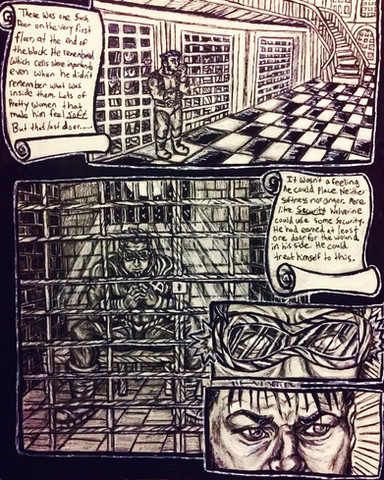 There was one such
door on the very first
floor, at the end of
the block. He remembered
which cells were important
even when he didn't
remember what was
inside them. Lots of
Pretty women that
make him feel soft.
But that last door.....
It wasn't a feeling
he could place. Neither
softness nor anger. More
like Security. Wolverine
could use some security.
He had earned at least
one door for the wound
in his side. He could
treat himself to this.